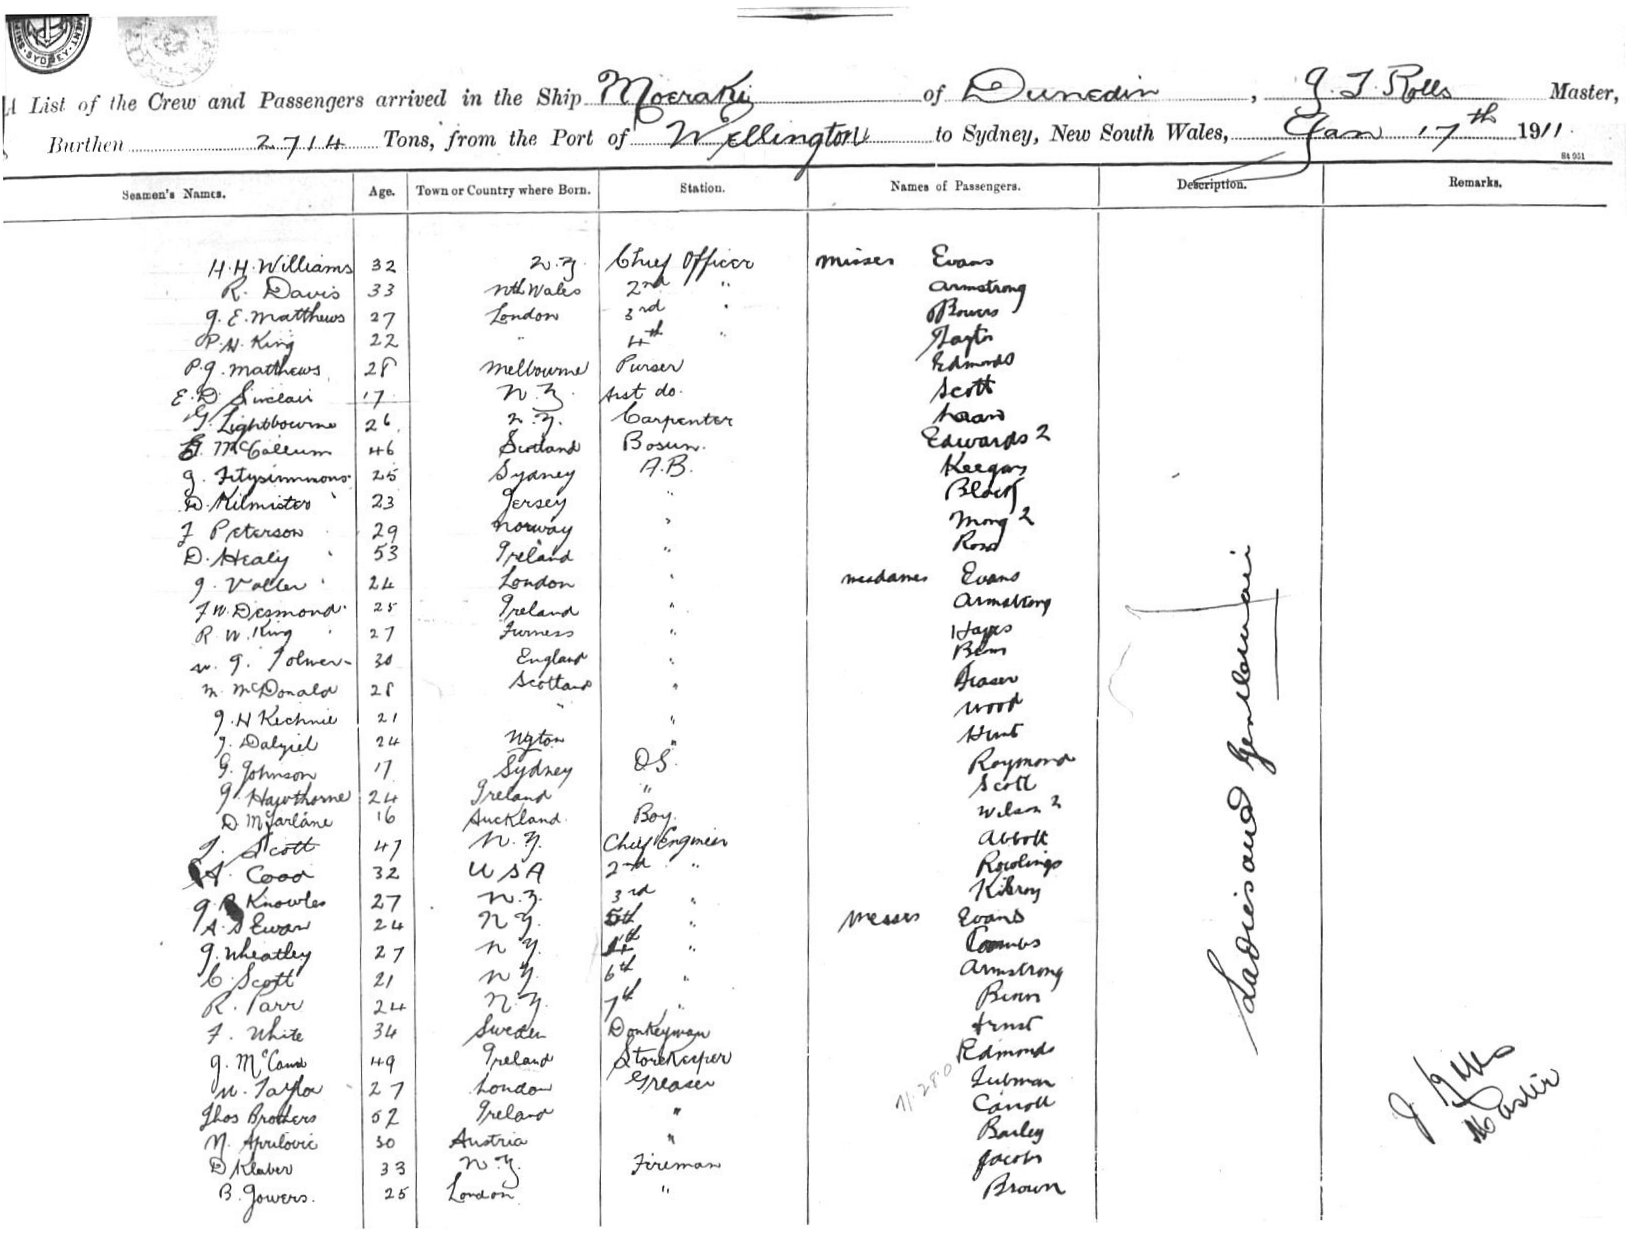 A List of the Crew and Passengers arrived in the Ship Moeraki of Dunedin, J. T. Rolls Master,
Burthen 2714 Tons, from the Port of Wellington to Sydney, New South Wales, Jan 17th 1911.
84 951
Seamen's Names. Age. Town or Country where Born. Station. Names of Passengers. Description. Remarks.
H. H. Williams 32 N.Z. Chief Officer Misses Evans
R. Davis 33 Nth Wales 2nd " Armstrong
J. E. Matthews 27 London 3rd " Bowers
P. H. King 22 " 4th "
P. J. Matthews 28 Melbourne Purser Edmonds
E. D. Sinclair 17 N.Z. Asst do. Scott
G. Lightbourne 26 N.Z. Carpenter
McCallum 46 Scotland Bosun. Edwards 2
J. Fitzsimmons 25 Sydney A.B. Keegan
D. Kilmister 23 Jersey " Black
F Peterson 29 Norway " 2
D. Healy 53 Ireland " Ross
J. 24 London " Mesdames Evans
F W. Desmond 25 Ireland " Armstrong
R. W. King 27 Furness " Hayes
W. J. Tolmer 30 England " Benn
M. McDonald 28 Scotland " Fraser
J. H Kechnie 21 " " Wood
J. Dalziel 24 " Hunt
G. Johnson 17 Sydney O.S. Raymond
J. Hawthorne 24 Ireland " Scott
D McFarlane 16 Auckland Boy. Wilson 2
Scott 47 N.Z. Chief Engineer Abbott
A. Coad 32 U S A 2nd " Rowlings
J. R Knowles 27 N.Z. 3rd " Kilroy
A. S Ewan 24 N.Z. 5th " Messrs Evans
J. Wheatley 27 N.Z. 4th " Coombs
C. Scott 21 N.Z. 6th " Armstrong
R. Parr 24 N.Z. 7th " Benn
F. White 34 Sweden Donkeyman Ernst
J. McCann 49 Ireland Storekeeper Edmonds
W. Taylor 27 London Greaser
Thos Brothers 52 Ireland " Carroll
M. Aprilovic 30 Austria " Barley
D Klaber 33 N.Z. Fireman Jacobs
B. Gowers. 25 London " Brown
Ladies and Gentlemen
Master